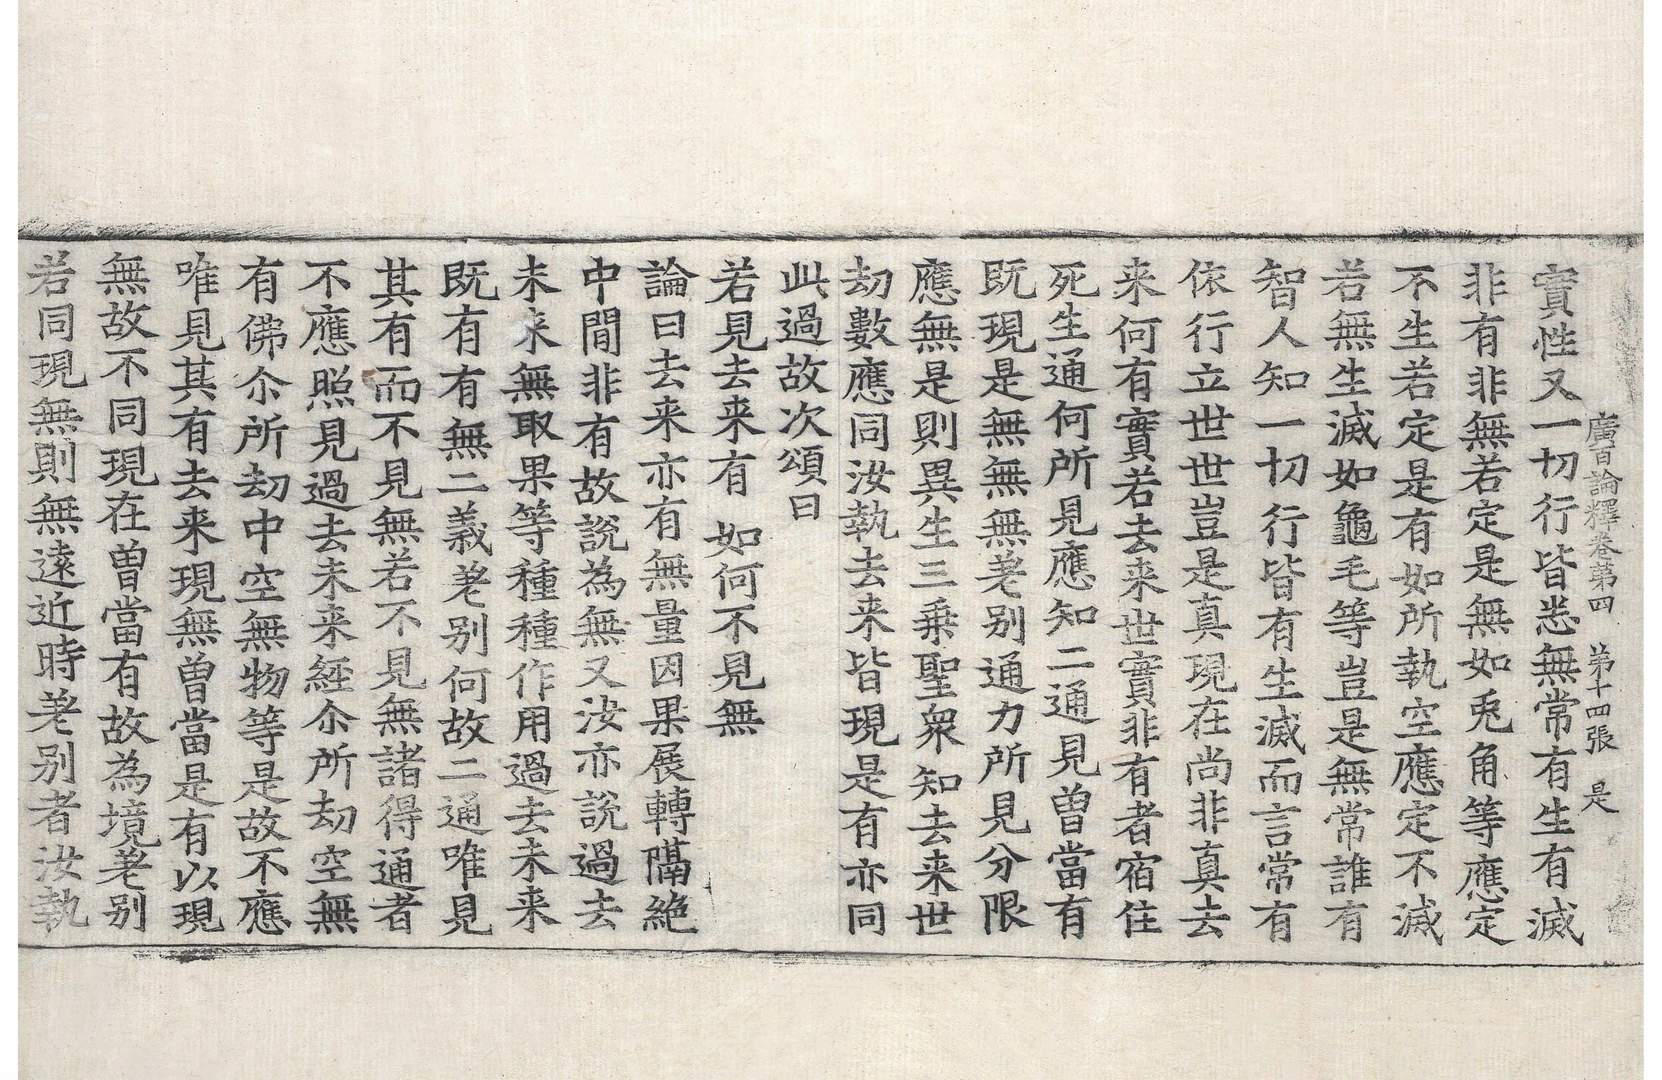 廣百論釋卷第四　第十四張　是
實性又一切行皆悉無常有生有滅
非有非無若定是無如兎角等應定
不生若定是有如所執空應定不滅
若無生滅如龜毛等豈是無常誰有
智人知一切行皆有生滅而言常有
依行立世世豈是真現在尚非真去
来何有實若去来世實非有者宿住
死生通何所見應知二通見曽當有
既現是無無無差别通力所見分限
應無是則異生三乗聖衆知去来世
劫數應同汝執去来皆現是有亦同
此過故次頌曰
若見去来有　如何不見無
論曰去来亦有無量因果展轉隔絶
中間非有故說為無又汝亦說過去
未来無取果等種種作用過去未来
既有有無二義差别何故二通唯見
其有而不見無若不見無諸得通者
不應照見過去未来經尒所劫空無
有佛尒所劫中空無物等是故不應
唯見其有去来現無曽當是有以現
無故不同現在曽當有故為境差别
若同現無則無遠近時差别者汝執